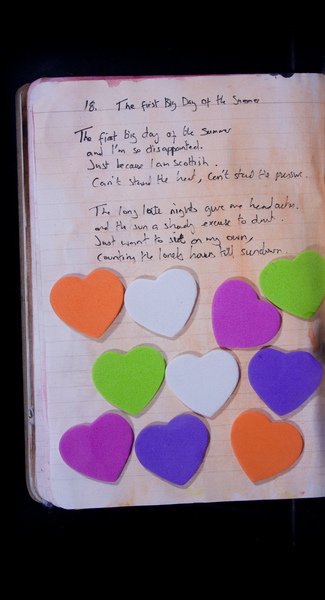 18. The first Big Day of the Summer
The first big day of the summer
and I'm so disappointed.
Just because I am scottish.
Can't stand the heat, can't stand the pressure.
The long late nights give me headaches.
and the sun a shady excuse to drink.
Just want to sit on my own,
counting the lonely hours till sundown.